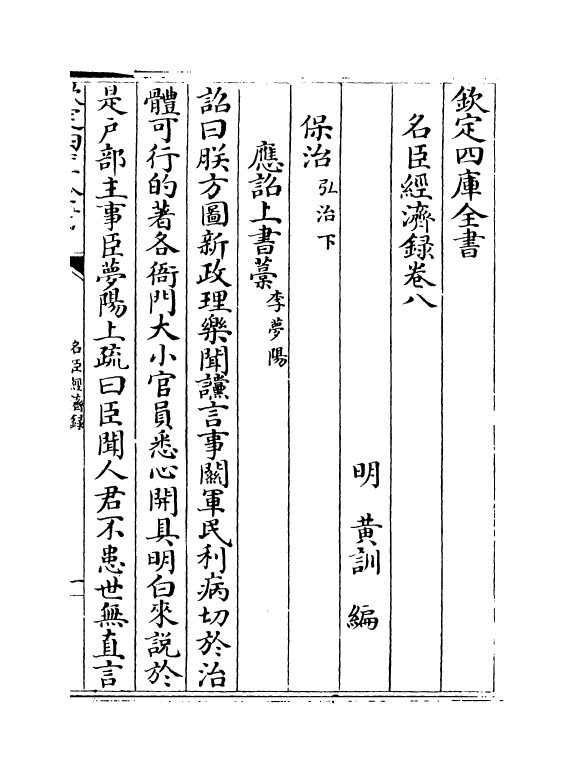 欽定四庫全書
名臣經濟録卷八
明 黃訓 編
保治 弘治下
應詔上書藁 李夢陽
詔曰朕方圖新政理樂聞讜言事關軍民利病切於治
體可行的著各衙門大小官員悉心開具明白來説於
是戸部主事臣夢陽上疏曰臣聞人君不患世無直言
名臣經濟録
一